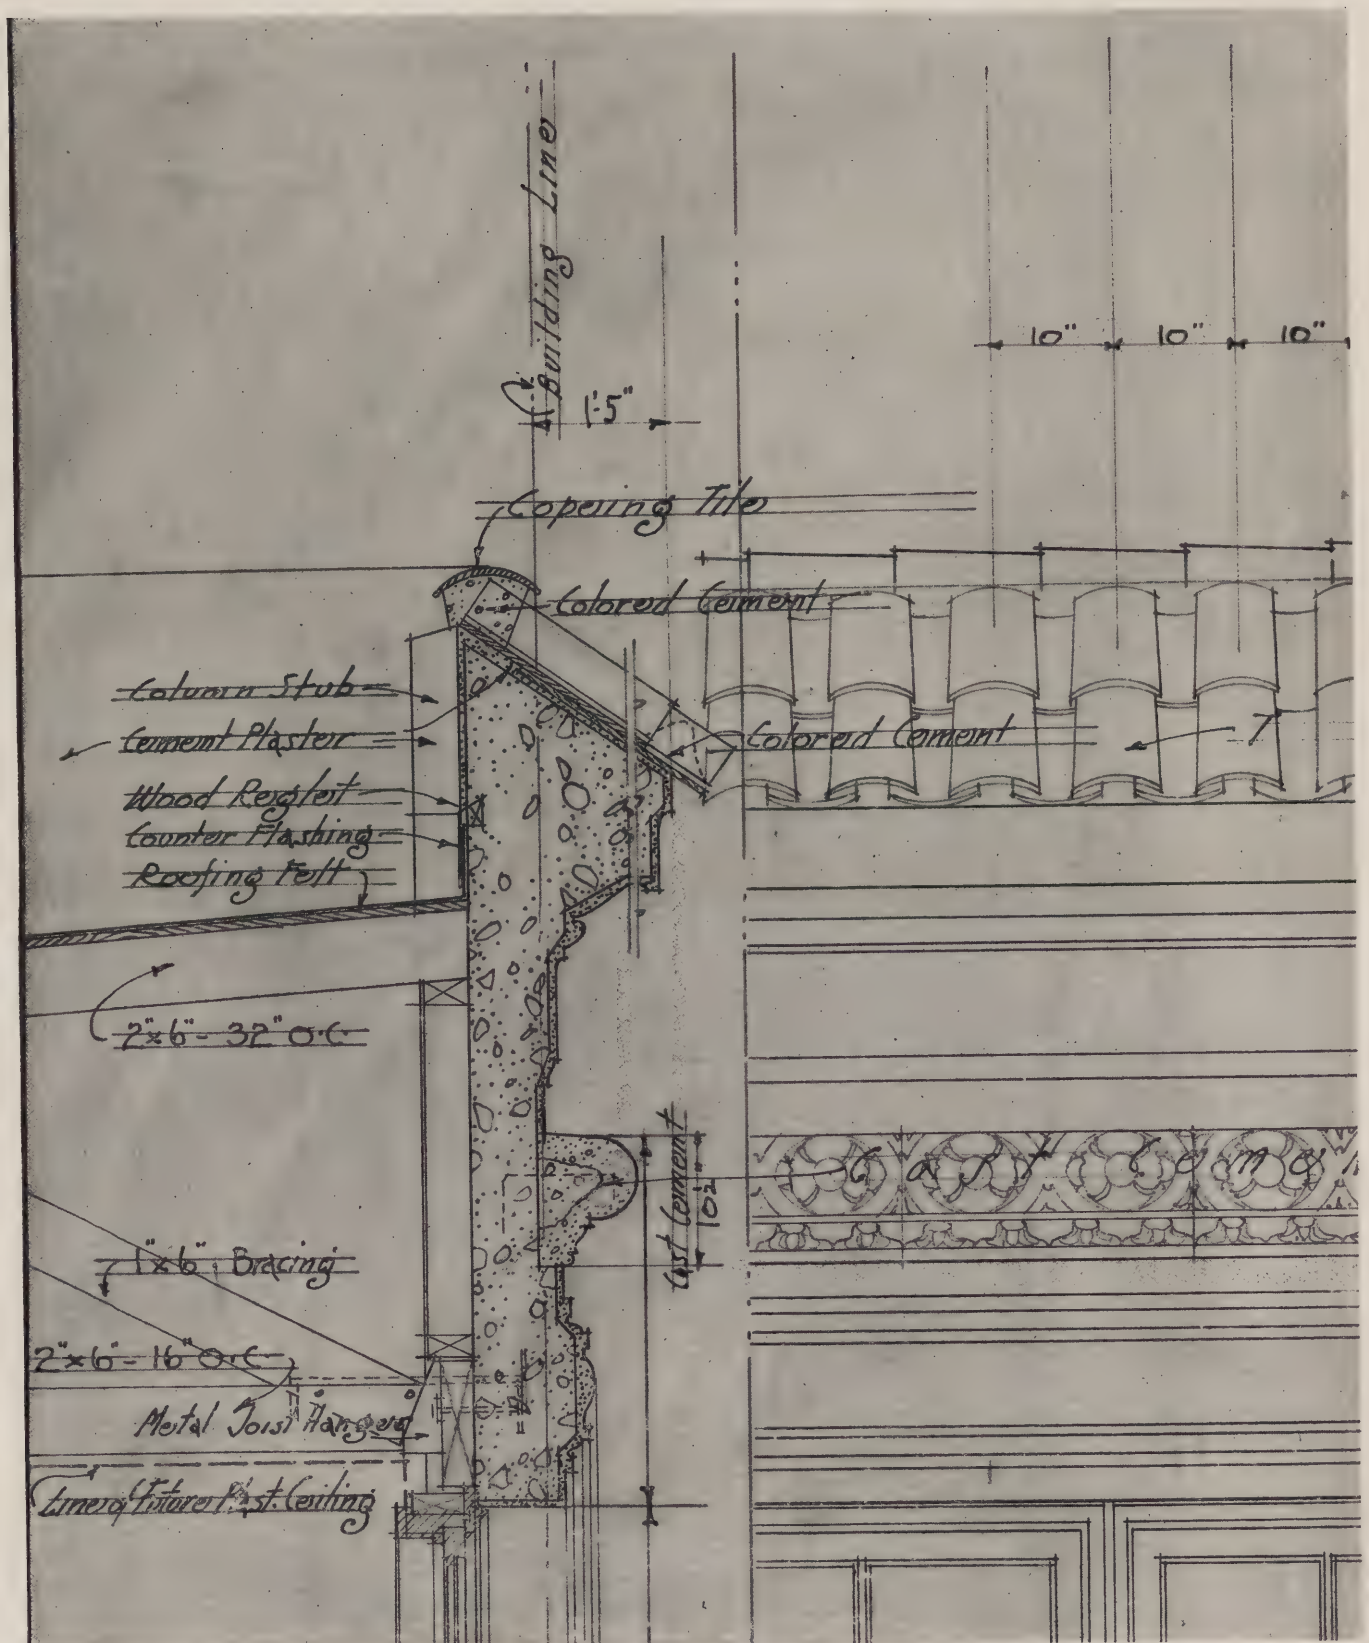 Building Line
10" 10" 10"
1'-5"
Copeing Tile
Colored Cement
Column Stub
Cement Plaster
Colored Cement
T
Wood Reglet
Counter Flashing
Roofing Felt
2"x6" - 32" O.C.
Cast Cement
10½"
Cast Ceme
1"x6" Bracing
2"x6" - 16" O.C.
Metal Joist Hangers
Line of Future Plast. Ceiling